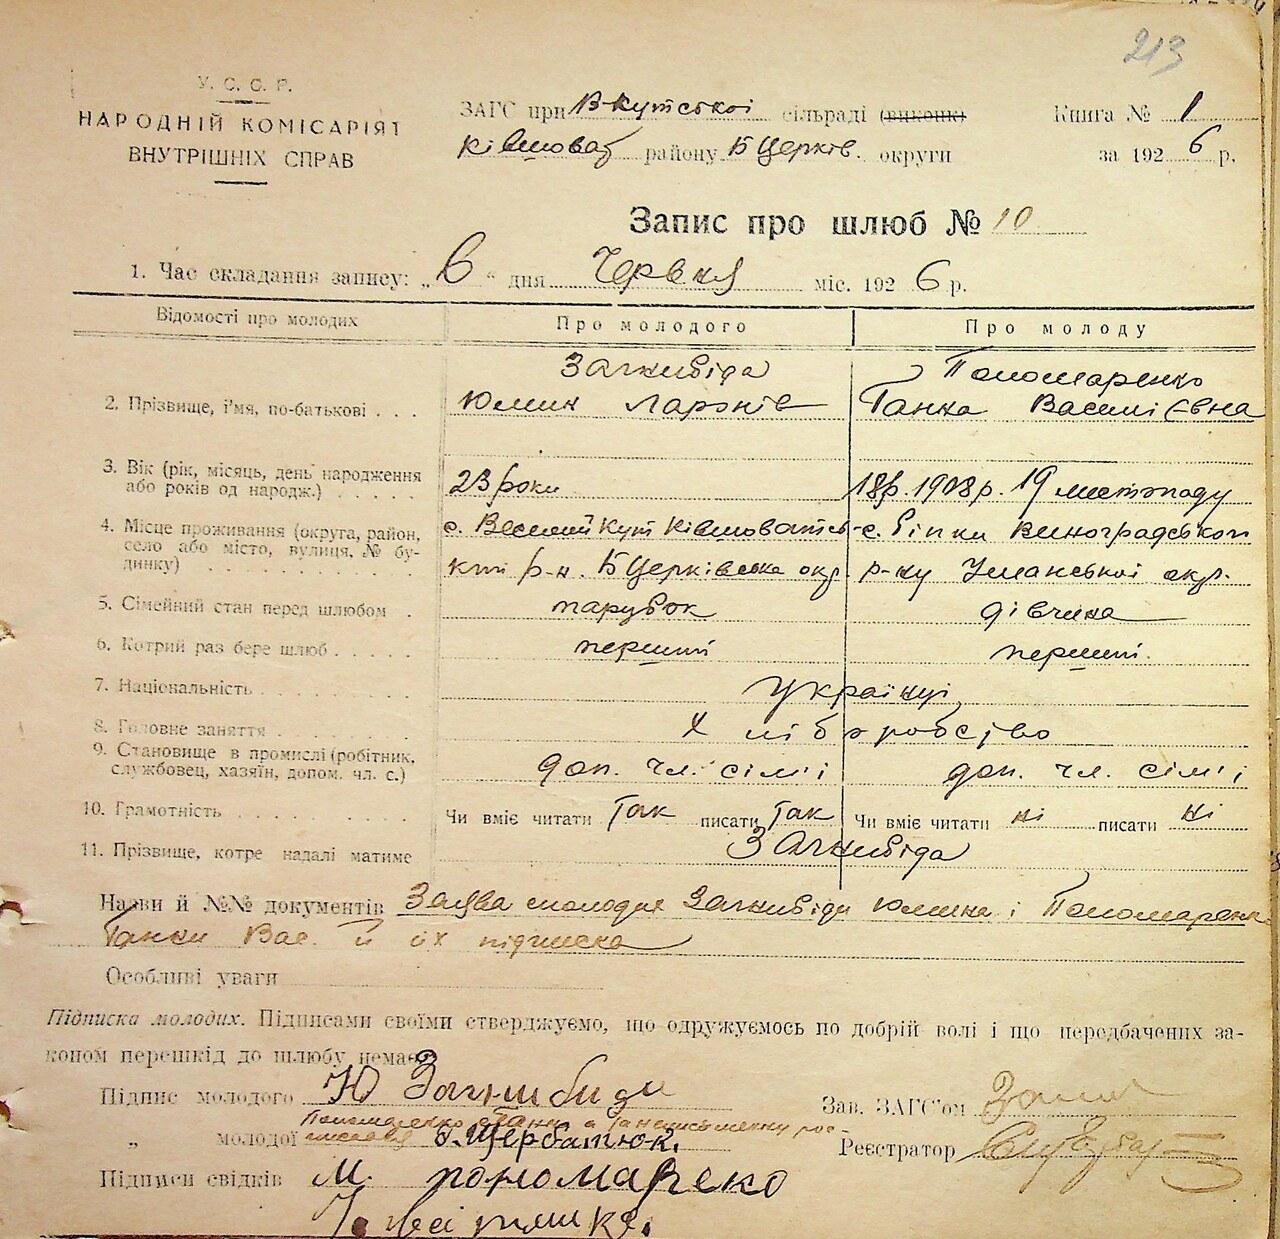 213
У. С. С. Р.
НАРОДНІЙ КОМІСАРІЯТ
ВНУТРІШНІХ СПРАВ
ЗАГС при В-Кутській сільраді (виконк)
Ківшоват району Б Церків. округи
Книга № 1
за 1926 р.
Запис про шлюб № 10
1. Час складання запису: „6“ дня Червня міс. 1926 р.
Відомості про молодих
Про молодого
Про молоду
2. Прізвище, і'мя, по-батькові . . .
Загнибіда
Юмин Ларонів
Пономаренко
Ганка Василієвна
3. Вік (рік, місяць, день народження
або років од народж.) . . . . .
23 роки
18р. 1908 р. 19 листопаду
4. Місце проживання (округа, район,
село або місто, вулиця, № бу-
динку) . . . . . . . . . .
с. Веселий Кут Ківшоватсь-
кий р-н. Б Церківська окр.
с. Ріпки Виноградського
р-ну Уманської окр.
5. Сімейний стан перед шлюбом .
парубок
дівчина
6. Котрий раз бере шлюб . . . . .
перший
перший.
7. Національність . . . . . . . .
Українці
8. Головне заняття . . . . . . .
Хліборобство
9. Становище в промислі (робітник,
службовец, хазяїн, допом. чл. с.)
доп. чл. сім'ї
доп. чл. сім'ї
10. Грамотність . . . . . . . . .
Чи вміє читати Так писати Так
Чи вміє читати ні писати ні
11. Прізвище, котре надалі матиме
Загнибіда
Назви й №№ документів Заява молодих Загнибіди Юмина і Пономаренк
Ганки Вас. й їх підписка
Особливі уваги
Підписка молодих. Підписами своїми стверджуємо, що одружуємось по добрій волі і що передбачених за-
коном перешкід до шлюбу немає.
Підпис молодого Ю Загнибиди
Зав. ЗАГС'ом
Пономаренко Ганн а
„ молодої Щербатюк.
Реєстратор
Підписи свідків М. пономареко